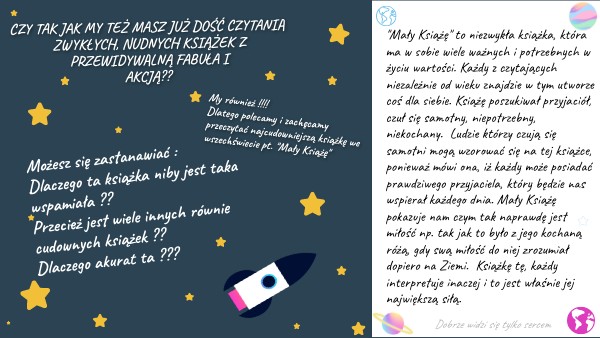 CZY TAK JAK MY TEŻ MASZ JUŻ DOŚĆ CZYTANIA
ZWYKŁYCH, NUDNYCH KSIĄŻEK Z
PRZEWIDYWALNĄ FABUŁĄ I
AKCJĄ??
My również !!!!
Dlatego polecamy i zachęcamy
przeczytać najcudowniejszą książkę we
wszechświecie pt. "Mały Książę"
Możesz się zastanawiać :
Dlaczego ta książka niby jest taka
wspaniała ??
Przecież jest wiele innych równie
cudownych książek ??
Dlaczego akurat ta ???
"Mały Książę" to niezwykła książka, która
ma w sobie wiele ważnych i potrzebnych w
życiu wartości. Każdy z czytających
niezależnie od wieku znajdzie w tym utworze
coś dla siebie. Książę poszukiwał przyjaciół,
czuł się samotny, niepotrzebny,
niekochany. Ludzie którzy czują się
samotni mogą wzorować się na tej książce,
ponieważ mówi ona, iż każdy może posiadać
prawdziwego przyjaciela, który będzie nas
wspierał każdego dnia. Mały Książę
pokazuje nam czym tak naprawdę jest
miłość np. tak jak to było z jego kochaną
różą, gdy swą miłość do niej zrozumiał
dopiero na Ziemi. Książkę tę, każdy
interpretuje inaczej i to jest właśnie jej
największą siłą.
Dobrze widzi się tylko sercem.